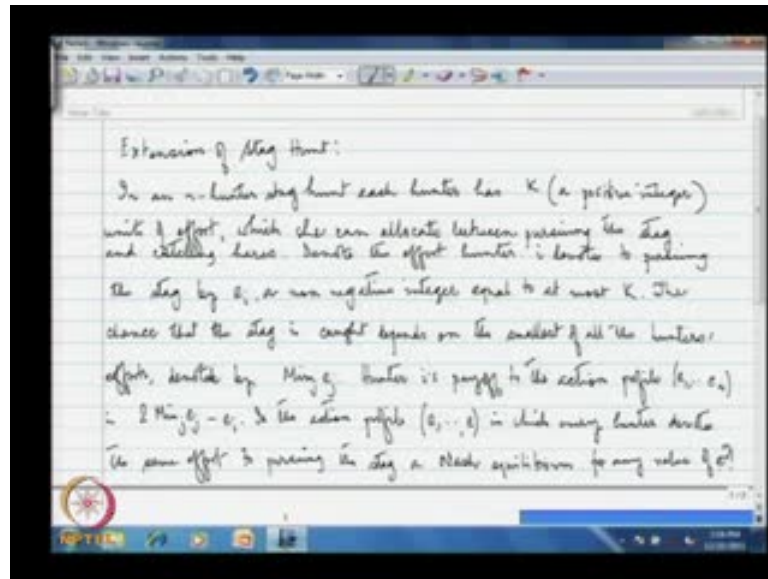 Extension of Stag Hunt:
In an n-hunter stag hunt each hunter has K (a positive integer)
units of effort, which she can allocate between pursuing the stag
and catching hares. Denote the effort hunter i devotes to pursuing
the stag by ei, a non negative integer equal to at most K. The
chance that the stag is caught depends on the smallest of all the hunters'
efforts, denoted by Minj ej. Hunter i's payoff to the action profile (e1,..en)
is 2 Minj ej - ei. Is the action profile (e,..,e) in which every hunter devotes
the same effort to pursuing the stag a Nash equilibrium for any value of e?
NPTEL